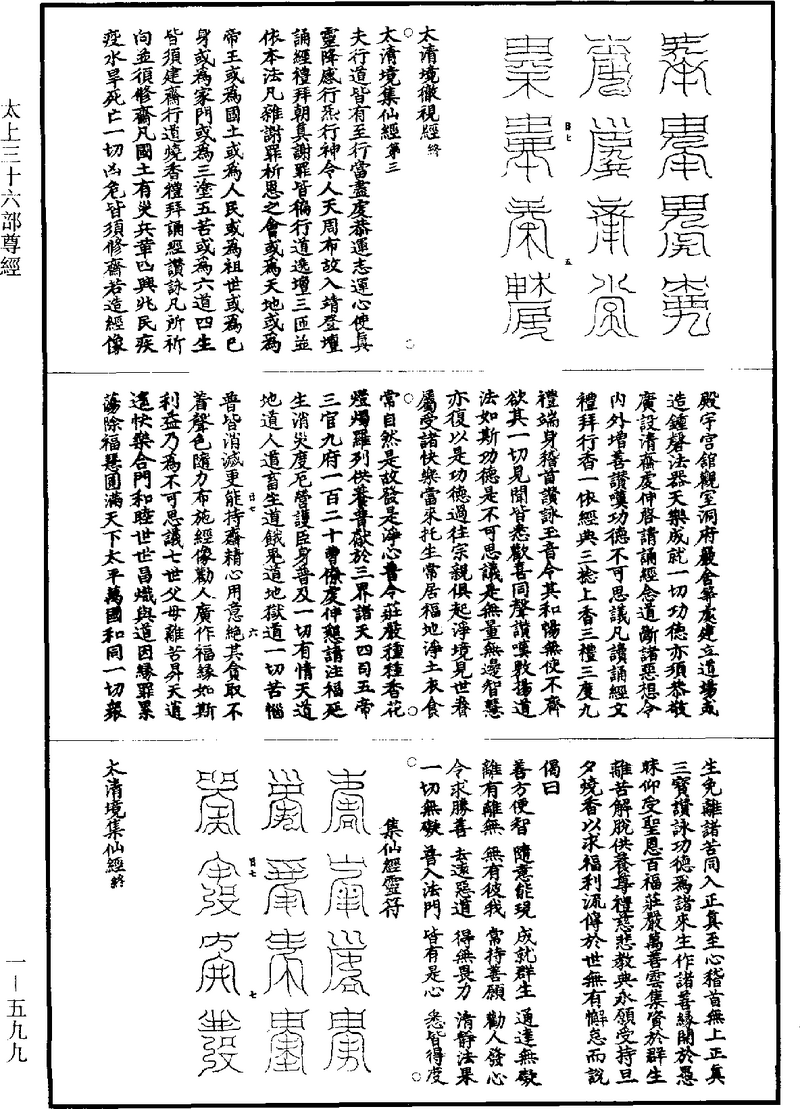 太清境徹視經終
太清境集仙經第三
夫行道皆有至行當盡虔恭運志運心使真
靈降感行炁行神令人天周布故入靖登壇
誦經禮拜朝真謝罪皆徧行道遶壇三匝並
依本法凡雜謝罪祈恩之會或為天地或為
帝王或為國土或為人民或為祖世或為己
身或為家門或為三塗五苦或為六道四生
皆須建齋行道燒香禮拜誦經讚詠凡所祈
向並須修齋凡國土有災兵革凶興兆民疾
疫水旱死亡一切凶危皆須修齋若造經像
殿宇宮館觀室洞府嚴舍華處建立道場或
造鍾磬法器天樂成就一切功德亦須恭敬
廣設清齋虔伸啓請誦經念道斷諸惡想令
內外增善讚嘆功德不可思議凡讀誦經文
禮拜行香一依經典三捻上香三禮三度九
禮端身稽首讚詠玉音令其和暢無使不齊
欲其一切見聞皆悉歡喜同聲讚嘆敷揚道
法如斯功德是不可思議是無量無邊智慧
亦復以是功德過往宗親俱起淨境見世眷
屬受諸快樂當來托生常居福地淨土衣食
常自然是故發是淨心普令莊嚴種種香花
燈燭羅列供養普獻於三界諸天四司五帝
三官九府一百二十曹僚虔伸懇請注福延
生消災度厄營護臣身普及一切有情天道
地道人道畜生道餓鬼道地獄道一切苦惱
普皆消滅更能持齋精心用意絶其貪取不
着聲色隨力布施經像勸人廣作福緣如斯
利益乃為不可思議七世父母離苦昇天逍
遙快樂合門和睦世世昌熾與道因緣罪累
蕩除福慧圓滿天下太平萬國和同一切衆
生免離諸苦同入正真至心稽首無上正真
三寶讚詠功德為諸來生作諸善緣開於愚
昧仰受聖恩百福莊嚴萬善雲集資於群生
離苦解脫供養尊禮慈悲教典永願受持旦
夕燒香以求福利流傳於世無有懈怠而說
偈曰
善方便智 隨意能現 成就群生 通達無礙
離有離無 無有彼我 常待善願 勸人發心
令求勝善 去遠惡道 得無畏力 清靜法果
一切無礙 善入法門 皆有是心 悉皆得度
集仙經靈符
太清境集仙經終
太上三十六部尊經
一—五九九